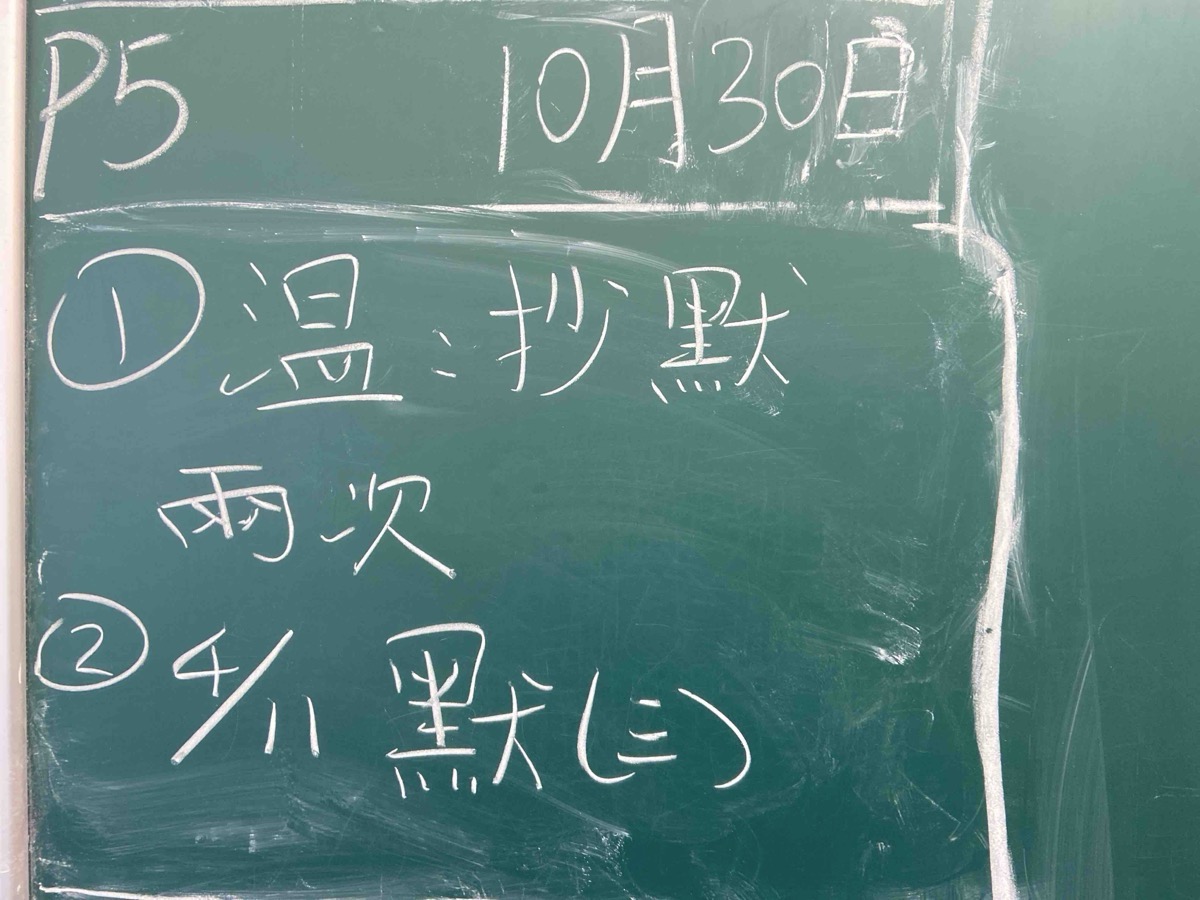 P5 10月30日
① 溫：抄默
兩次
② 4/11 默(三)